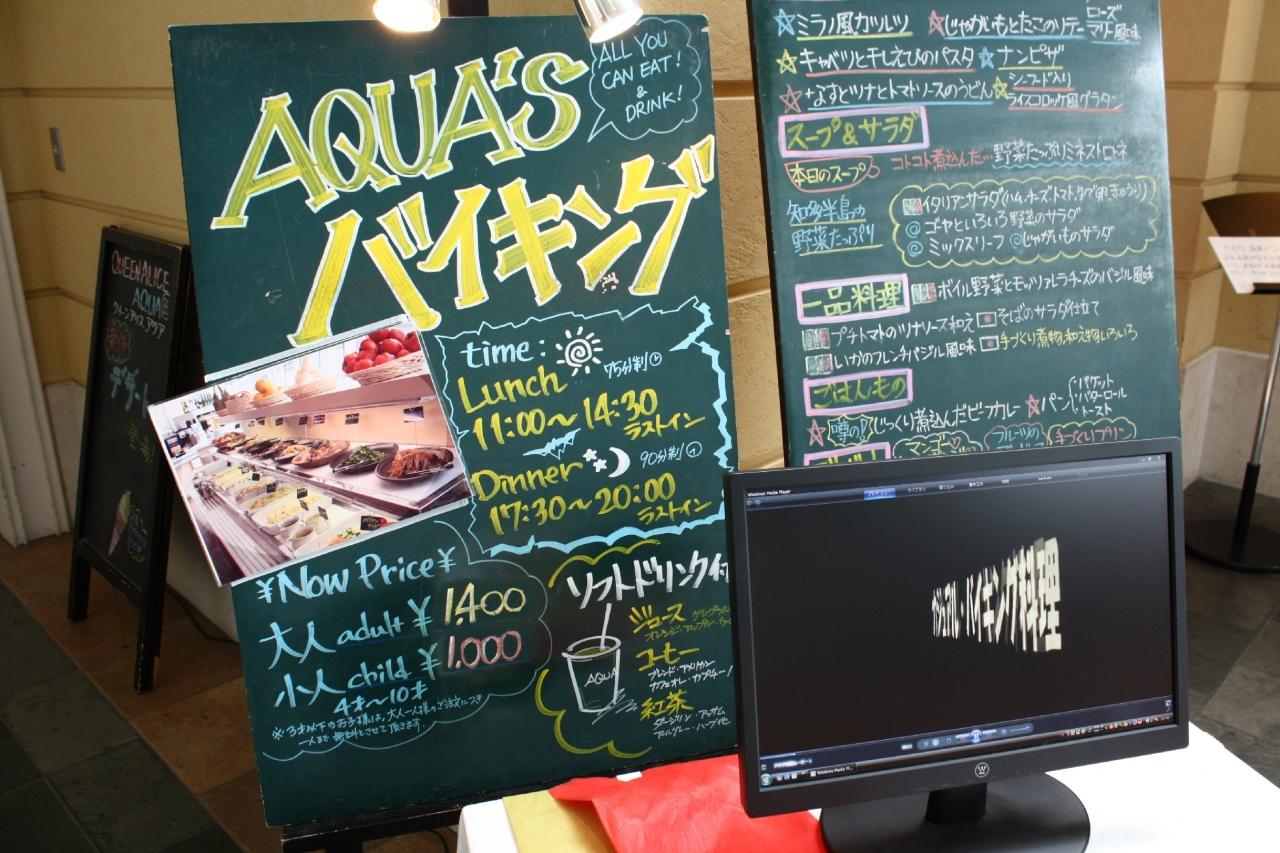 AQUA'S
バイキング
ALL YOU
CAN EAT!
&
DRINK!
time:
75分制
Lunch
11:00～14:30
ラストイン
Dinner
90分制
17:30～20:00
ラストイン
¥Now Price¥
大人 adult ¥1,400
小人 child ¥1,000
4才～10才
※3才以下のお子様は、大人一人様のご注文につき
一人まで無料とさせて頂きます。
ソフトドリンク付
ジュース
コーヒー
ブレンド・アメリカン
カフェオレ・カプチーノ
紅茶
ダージリン・アッサム
アールグレー・ハーブ他
AQUA
QUEEN ALICE
AQUA
クイーンアリス アクア
デザート
登場
ミラノ風カツレツ
じゃがいもとたこのソテー ローズマリー風味
キャベツと干しえびのパスタ
ナンピザ
なすとツナとトマトソースのうどん
シーフード入り
ライスコロッケ風グラタン
スープ&サラダ
本日のスープ
コトコト煮込んだ…野菜たっぷりミネストローネ
知多半島の
野菜たっぷり
イタリアンサラダ(ハム,チーズ,トマト,ゆで卵,きゅうり)
@ゴヤといろいろ野菜のサラダ
@ミックスリーフ @じゃがいものサラダ
一品料理
ボイル野菜とモッツァレラチーズのバジル風味
プチトマトのツナソース和え
そばのサラダ仕立て
いかのフレンチバジル風味
手づくり煮物,和え物いろいろ
ごはんもの
噂の!じっくり煮込んだビーフカレー
パン
バケット
バターロール
トースト
マンゴー
フルーツの
手づくりプリン
Windows Media Player
ライブラリ
カジュアル・バイキング料理